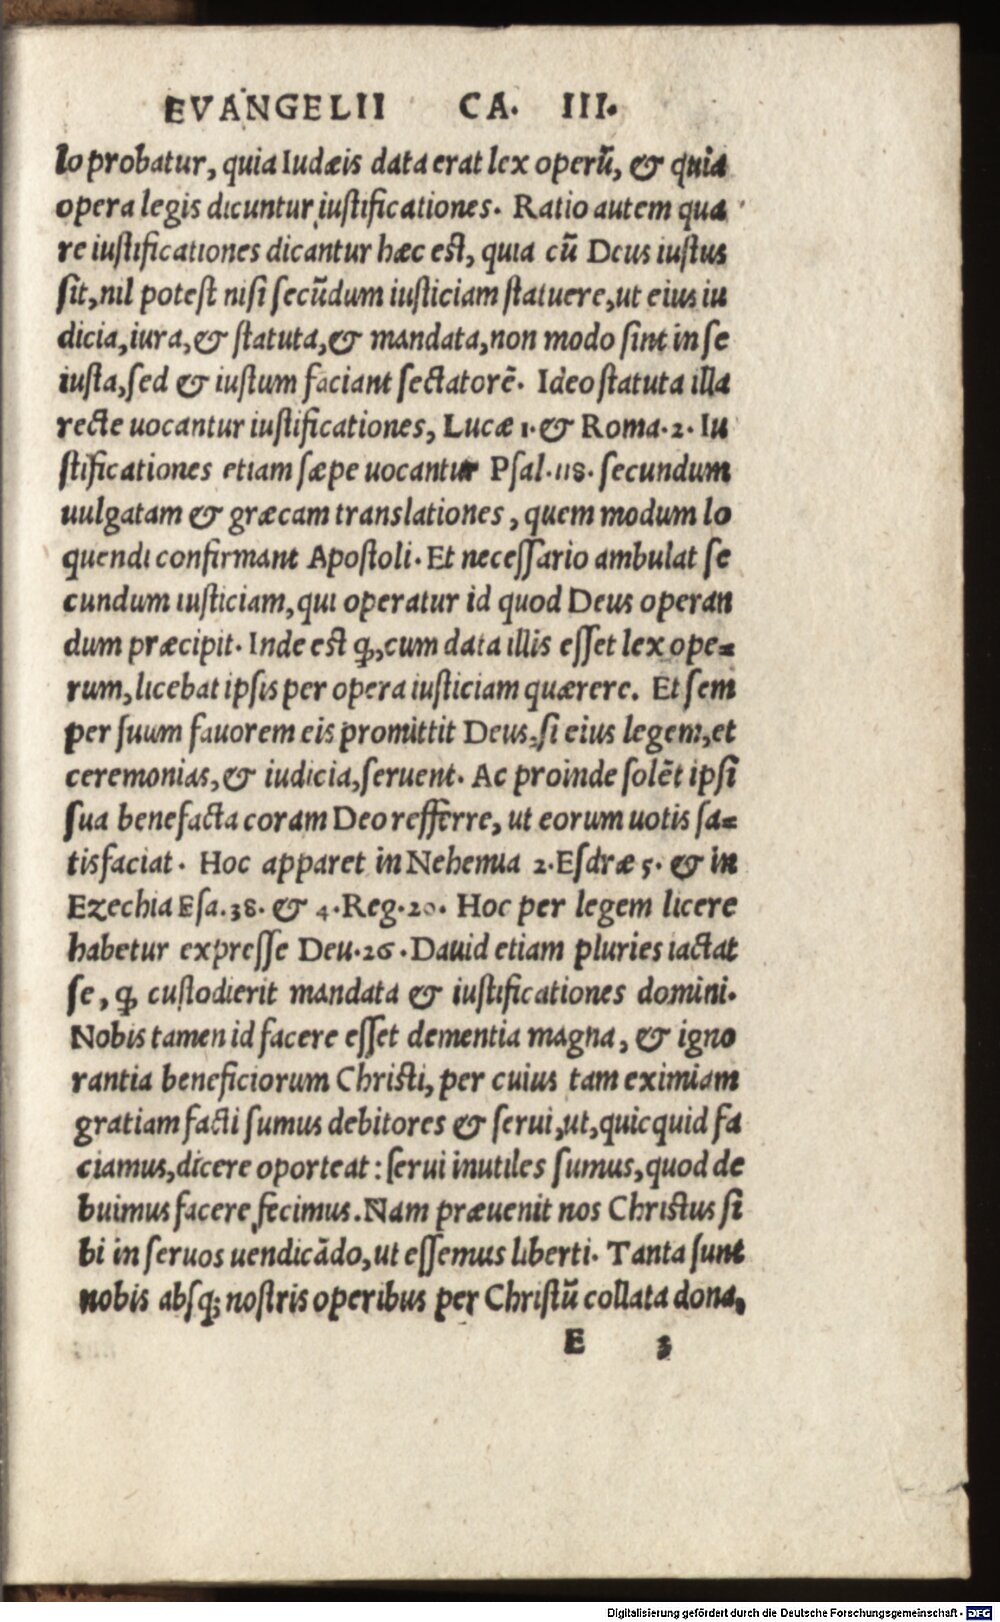 EVANGELII CA. III.
lo probatur, quia Iudæis data erat lex operũ, & quia
opera legis dicuntur iustificationes. Ratio autem qua
re iustificationes dicantur hæc est, quia cũ Deus iustus
sit, nil potest nisi secũdum iusticiam statuere, ut eius iu
dicia, iura, & statuta, & mandata, non modo sint in se
iusta, sed & iustum faciant sectatorẽ. Ideo statuta illa
recte uocantur iustificationes, Lucæ 1. & Roma. 2. Iu
stificationes etiam sæpe uocantur Psal. 118. secundum
uulgatam & græcam translationes, quem modum lo
quendi confirmant Apostoli. Et necessario ambulat se
cundum iusticiam, qui operatur id quod Deus operan
dum præcipit. Inde est ꝙ, cum data illis esset lex ope=
rum, licebat ipsis per opera iusticiam quærere. Et sem
per suum fauorem eis promittit Deus, si eius legem, et
ceremonias, & iudicia, seruent. Ac proinde solẽt ipsi
sua benefacta coram Deo refferre, ut eorum uotis sa=
tisfaciat. Hoc apparet in Nehemia 2. Esdræ 5. & in
Ezechia Esa. 38. & 4. Reg. 20. Hoc per legem licere
habetur expresse Deu. 26. Dauid etiam pluries iactat
se, ꝙ custodierit mandata & iustificationes domini.
Nobis tamen id facere esset dementia magna, & igno
rantia beneficiorum Christi, per cuius tam eximiam
gratiam facti sumus debitores & serui, ut, quicquid fa
ciamus, dicere oporteat: serui inutiles sumus, quod de
buimus facere, fecimus. Nam præuenit nos Christus si
bi in seruos uendicãdo, ut essemus liberti. Tanta sunt
nobis absq; nostris operibus per Christũ collata dona,
E 3
Digitalisierung gefördert durch die Deutsche Forschungsgemeinschaft - DFG